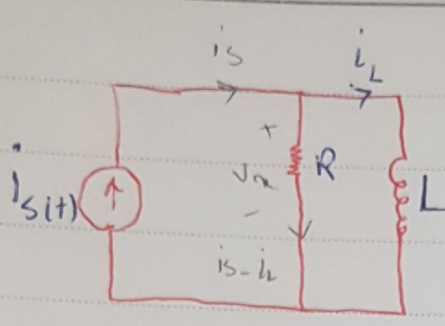 is
iL
+
is(t)
Vx
R
L
-
is-iL